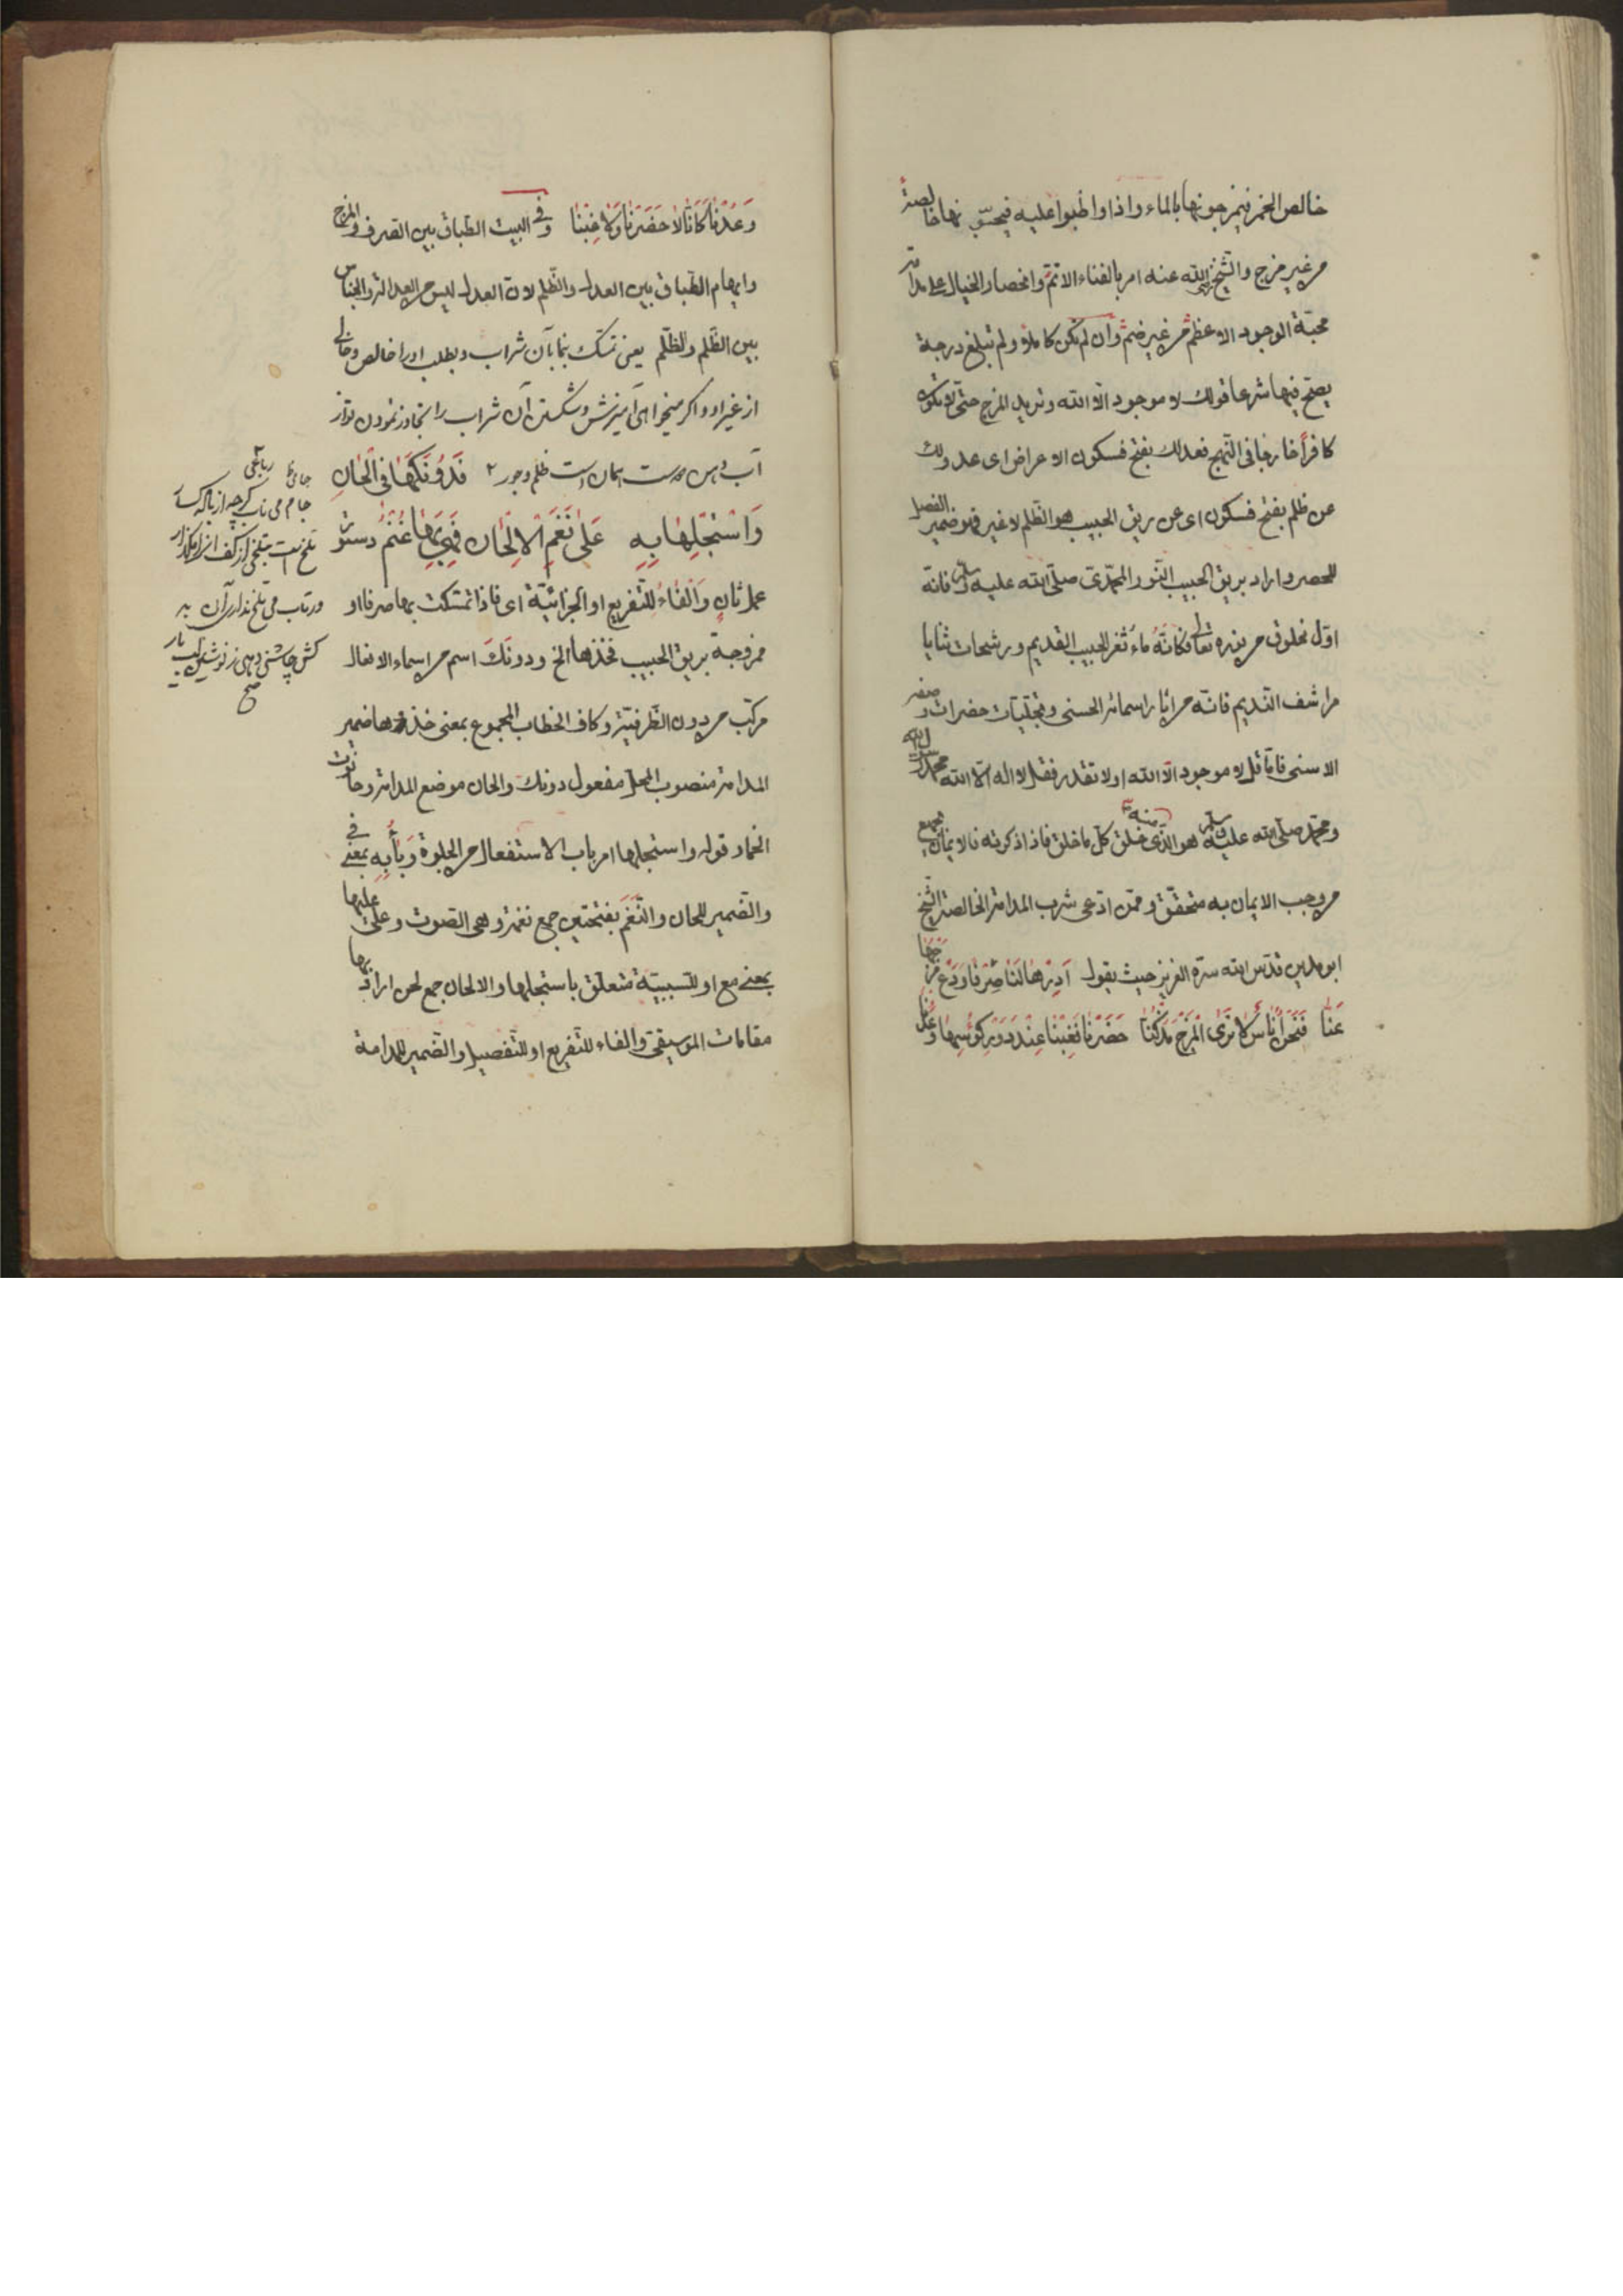 خالص الخمر فيمزجونها بالماء واذا واظبوا عليه فيحسّون بها خالصة
من غير مزج والشيخ رضى الله عنه امر بالفناء الاتمّ وانحصار الخيال على مدامة
محبّة الوجود الاعظم من غير ضمّ وان لم تكن كاملا ولم تبلغ درجة
يصحّ فيها شرعا قولك لا موجود الا الله وتريد المزج حتى لا تكون
كافرا خارجا فى النهج فعدلك بفتح فسكون الاعراض اى عدولك
عن ظلم بفتح فسكون اى عن ريق الحبيب هو الظلم لا غير فهو ضمير الفصل
للحصر واراد بريق الحبيب النور المحمّدى صلّى الله عليه وسلم فانه
اوّل مخلوق من نوره تعالى فكانّه ماء ثغر الحبيب القديم ورشحات ثنايا
مراشف النديم فانه مرايا اسمائه الحسنى وتجليات حضرات وصفه
الاسنى فامّا قل لا موجود الا الله او لا تقدر فقل لا اله الا الله محمد رسول الله
ومحمّد صلّى الله عليه وسلم هو الذى خلق منه كلّ ما خلق فاذا ذكرته فالايمان بجميع
ما وجب الايمان به متحقّق وممّن ادّعى شرب المدامة الخالصة الشيخ
ابو مدين قدّس الله سرّه العزيز حيث يقول اَدِرْهَا لَنَا صِرْفًا وَدَعْ مَزْجَهَا
عَنَّا فَنَحْنُ اُنَاسٌ لَا نَرَى الْمَزْجَ مُذْ كُنَّا حَضَرْنَا فَغِبْنَا عِنْدَ دَوْرِ كُؤُسِهَا وَعُدْنَا
وَعُدْنَا كَاَنَّا لَا حَضَرْنَا وَلَا غِبْنَا وفى البيت الطباق بين الصرف والمزج
وايهام الطباق بين العدل والظلم لان العدل ليس من العدالة والجناس
بين الظَّلم والظُّلم يعنى تمسك بنما بآن شراب وبطلب اورا خالص وخالى
از غير او واكر ميخواهى آميزش وشكستن آن شراب را تجاوز نمودن تو از
آب ظلم وجور فَدُونَكَهَا فِى الْحَانِ
وَاسْتَجْلِهَا بِهِ عَلَى نَغَمِ الْاَلْحَانِ فَهِىَ بِهَا غُنْمُ دستور
عمل ثان والفاء للتفريع او الجزائيّة اى فاذا تمسّكت بها صرفا او
ممزوجة بريق الحبيب فخذها الخ ودونك اسم من اسماء الافعال
مركّب من دون الظرفيّة وكاف الخطاب المجموع بمعنى خذ وها ضمير
المدامة منصوب المحلّ مفعول دونك والحان موضع المدامة وحانوت
الخمّار قوله واستجلها امر باب الاستفعال من الجلوة وباء به بمعنى فى
والضمير للحان والنغم بفتحتين جمع نغمة وهى الصوت وعلى عليها
بمعنى مع او للسببيّة متعلّق باستجلها والالحان جمع لحن اراد بها
مقامات الموسيقى والفاء للتفريع او للتفصيل والضمير للمدامة
رباعى
جام مى ناب كرچه از باك
تلخ است بتلخى از كف
ور تاب مى تلخ ندارى آن به
كش چاشنى دهى ز نوشين لب يار
صح